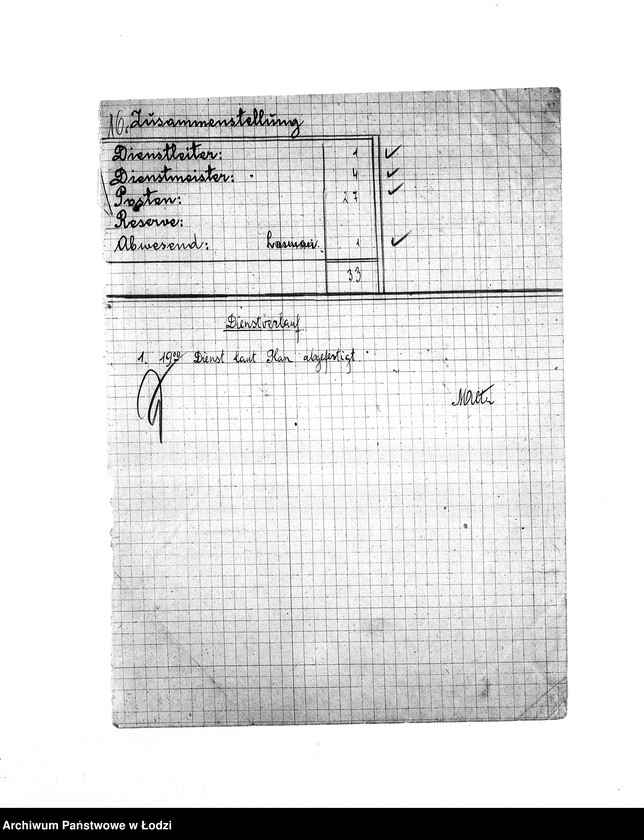 16. Zusammenstellung
Dienstleiter: 1
Dienstmeister: 4
Posten: 27
Reserve:
Abwesend: 1
33
Dienstverlauf
1. 19⁰⁰ Dienst laut Plan abgefertigt
Archiwum Państwowe w Łodzi